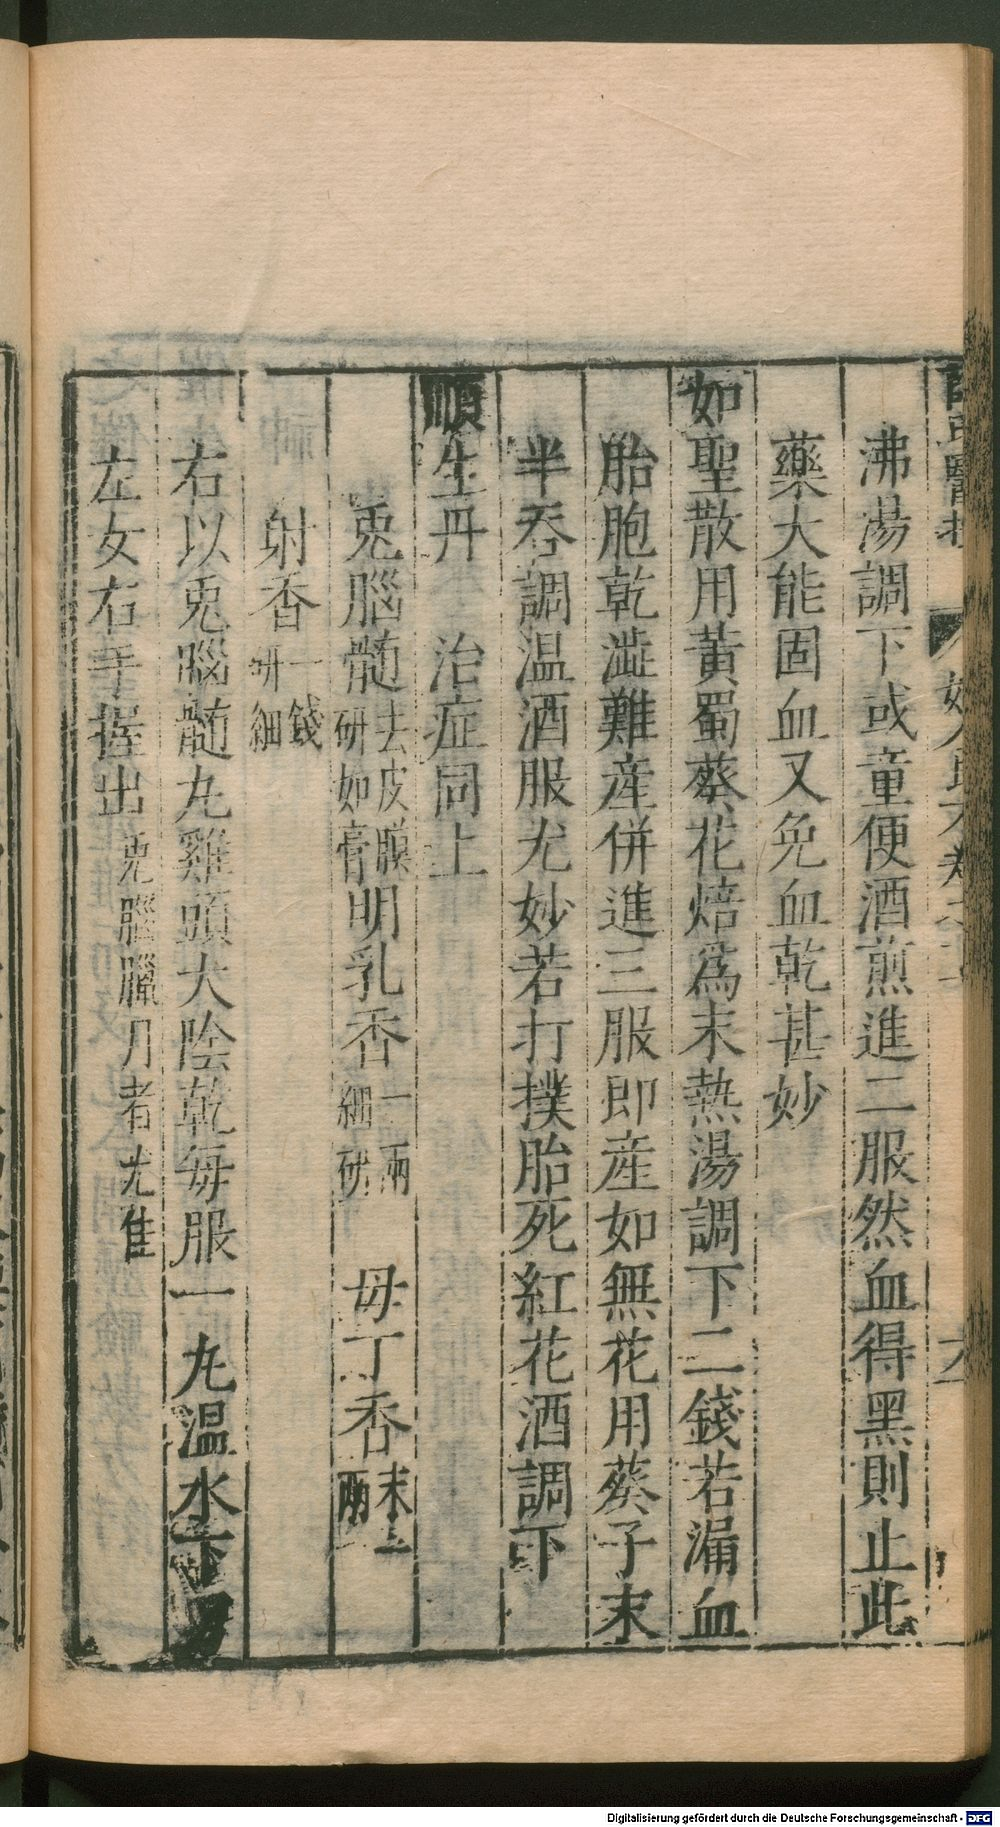 沸湯調下或童便酒煎進二服然血得黑則止此
藥大能固血又免血乾甚妙
如聖散用黃蜀葵花焙為末熱湯調下二錢若漏血
胎胞乾澁難產併進三服即產如無花用葵子末
半呑調温酒服尤妙若打撲胎死紅花酒調下
順生丹　治症同上
兎腦髓去皮膜研如膏明乳香一兩細研　母丁香末一兩
射香一錢研細
右以兎腦髓丸雞頭大陰乾每服一丸温水下
左女右手握出兎腦臘月者尤佳
Digitalisierung gefördert durch die Deutsche Forschungsgemeinschaft - DFG